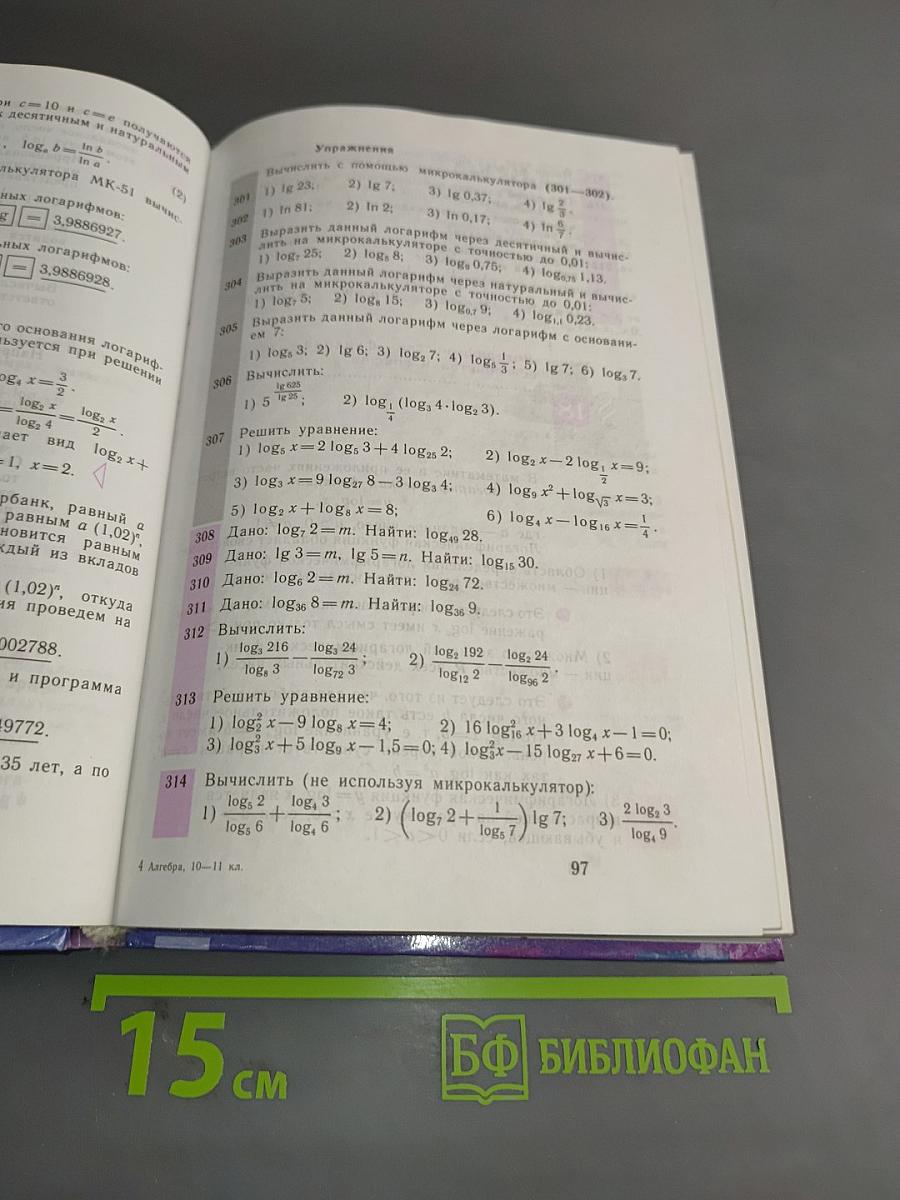 ри c=10 и c=e получаются
к десятичным и натуральным
. logₐ b = ln b / ln a .
(2)
лькулятора МК-51 вычис-
ных логарифмов:
g = 3,9886927.
ьных логарифмов:
= 3,9886928.
го основания логариф-
льзуется при решении
og₄ x = 3/2.
= log₂ x / log₂ 4 = log₂ x / 2 .
ает вид log₂ x +
=1, x=2.
рбанк, равный a
равным a (1,02)ⁿ,
новится равным
ждый из вкладов
(1,02)ⁿ, откуда
ия проведем на
002788.
и программа
49772.
35 лет, а по
Упражнения
Вычислить с помощью микрокалькулятора (301—302).
301 1) lg 23; 2) lg 7; 3) lg 0,37; 4) lg 2/3.
302 1) ln 81; 2) ln 2; 3) ln 0,17; 4) ln 6/7.
303 Выразить данный логарифм через десятичный и вычис-
лить на микрокалькуляторе с точностью до 0,01:
1) log₇ 25; 2) log₅ 8; 3) log₉ 0,75; 4) log₀,₇₅ 1,13.
304 Выразить данный логарифм через натуральный и вычис-
лить на микрокалькуляторе с точностью до 0,01:
1) log₇ 5; 2) log₈ 15; 3) log₀,₇ 9; 4) log₁,₁ 0,23.
305 Выразить данный логарифм через логарифм с основани-
ем 7:
1) log₅ 3; 2) lg 6; 3) log₂ 7; 4) log₅ 1/3; 5) lg 7; 6) log₃ 7.
306 Вычислить:
1) 5^(lg 625 / lg 25); 2) log_(1/4) (log₃ 4·log₂ 3).
307 Решить уравнение:
1) log₅ x=2 log₅ 3+4 log₂₅ 2; 2) log₂ x−2 log_(1/2) x=9;
3) log₃ x=9 log₂₇ 8−3 log₃ 4; 4) log₉ x²+log_(√3) x=3;
5) log₂ x+log₈ x=8; 6) log₄ x−log₁₆ x=1/4.
308 Дано: log₇ 2=m. Найти: log₄₉ 28.
309 Дано: lg 3=m, lg 5=n. Найти: log₁₅ 30.
310 Дано: log₆ 2=m. Найти: log₂₄ 72.
311 Дано: log₃₆ 8=m. Найти: log₃₆ 9.
312 Вычислить:
1) log₃ 216 / log₈ 3 − log₃ 24 / log₇₂ 3; 2) log₂ 192 / log₁₂ 2 − log₂ 24 / log₉₆ 2.
313 Решить уравнение:
1) log₂² x−9 log₈ x=4; 2) 16 log₁₆² x+3 log₄ x−1=0;
3) log₃² x+5 log₉ x−1,5=0; 4) log₃² x−15 log₂₇ x+6=0.
314 Вычислить (не используя микрокалькулятор):
1) log₅ 2 / log₅ 6 + log₄ 3 / log₄ 6; 2) (log₇ 2+ 1 / log₅ 7) lg 7; 3) 2 log₂ 3 / log₄ 9.
4 Алгебра, 10—11 кл.
97
15 см
БФ БИБЛИОФАН